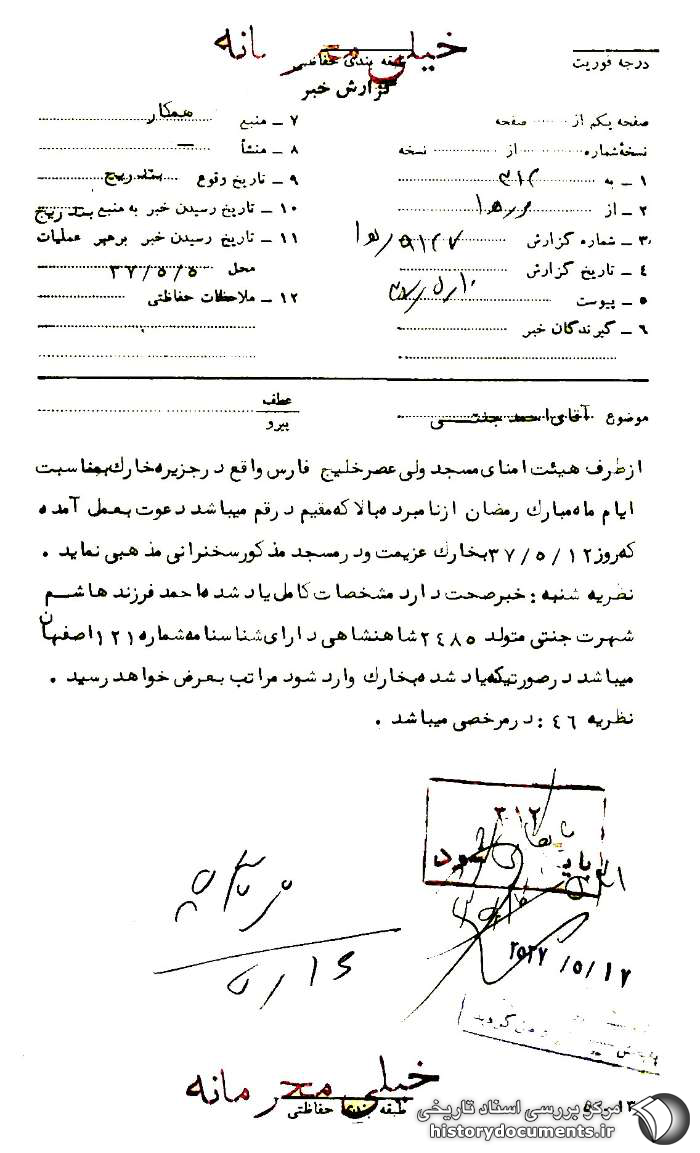 خیلی محرمانه
درجه فوریت
طبقه بندی حفاظتی
گزارش خبر
صفحه یکم از ........ صفحه
نسخهٔ شماره ........ از ........ نسخه
۱ ـ به ۳۱۲
۲ ـ از
۳ ـ شماره گزارش
۴ ـ تاریخ گزارش
۵ ـ پیوست
۶ ـ گیرندگان خبر
۷ ـ منبع همکار
۸ ـ منشأ ـ
۹ ـ تاریخ وقوع بتدریج
۱۰ ـ تاریخ رسیدن خبر به منبع بتدریج
۱۱ ـ تاریخ رسیدن خبر برهبر عملیات
محل ۳۷/۵/۵
۱۲ ـ ملاحظات حفاظتی
موضوع آقای احمد جنتی
عطف
پیرو
از طرف هیئت امنای مسجد ولی عصر خلیج فارس واقع در جزیره خارك بمناسبت
ایام ماه مبارك رمضان از نامبرده بالا که مقیم در قم میباشد دعوت بعمل آمده
که روز ۳۷/۵/۱۲ بخارك عزیمت ودر مسجد مذکور سخنرانی مذهبی نماید .
نظریه شنبه : خبر صحت دارد مشخصات کامل یاد شده احمد فرزند هاشم
شهرت جنتی متولد ۲٤۸۵ شاهنشاهی دارای شناسنامه شماره ۱۲۱ اصفهان
میباشد در صورتیکه یاد شده بخارك وارد شود مراتب بعرض خواهد رسید .
نظریه ٤٦ : در مرخصی میباشد .
۳۱۲
۲۵۳۷/۵/۱۷
خیلی محرمانه
طبقه بندی حفاظتی
مرکز بررسی اسناد تاریخی
historydocuments.ir